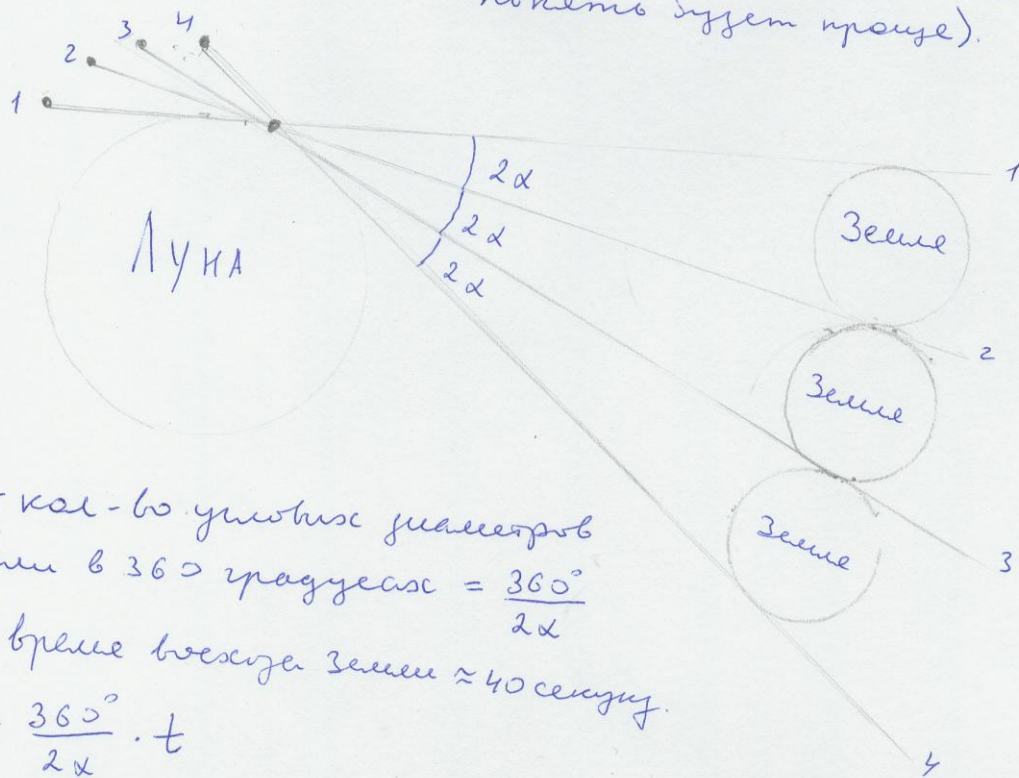 понять будет проще).
4
3
2
1
1
2α
2α
2α
Земля
Луна
2
Земля
Земля
3
кол-во угловых диаметров
в 360 градусах = 360°/2α
время восхода Земли ≈ 40 секунд.
360°/2α · t
4